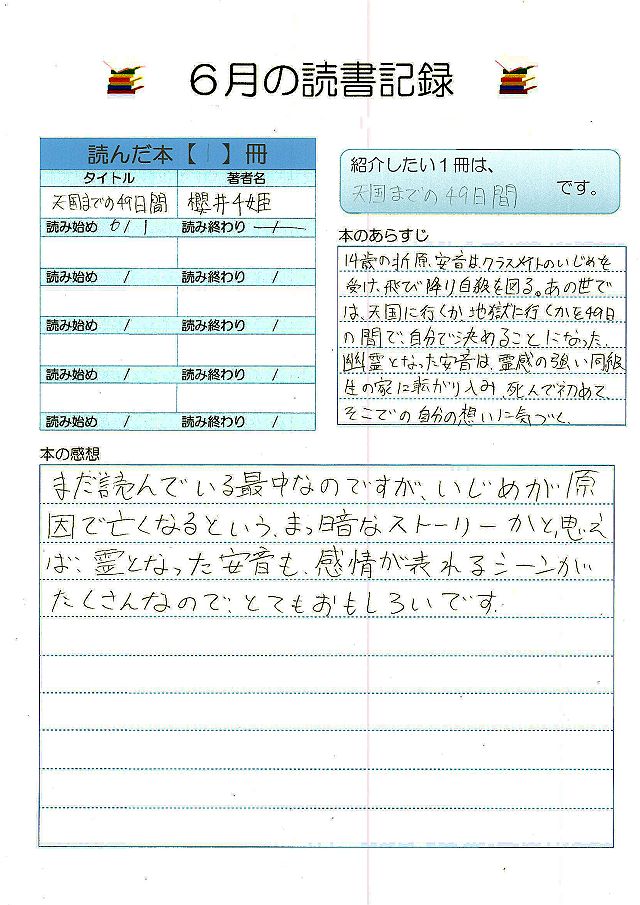 6月の読書記録
読んだ本【 1 】冊
タイトル 著者名
天国までの49日間 櫻井千姫
読み始め 6/1 読み終わり /
読み始め / 読み終わり /
読み始め / 読み終わり /
読み始め / 読み終わり /
読み始め / 読み終わり /
紹介したい1冊は、
天国までの49日間 です。
本のあらすじ
14歳の折原安音は、クラスメイトのいじめを
受け、飛び降り自殺を図る。あの世で
は、天国に行くか、地獄に行くかを49日
の間で、自分で決めることになった。
幽霊となった安音は、霊感の強い同級
生の家に転がり込み、死んで初めて
そこでの自分の想いに気づく。
本の感想
まだ読んでいる最中なのですが、いじめが原
因で亡くなるという、まっ暗なストーリーかと思え
ば、霊となった安音も、感情が表れるシーンが
たくさんなので、とてもおもしろいです。